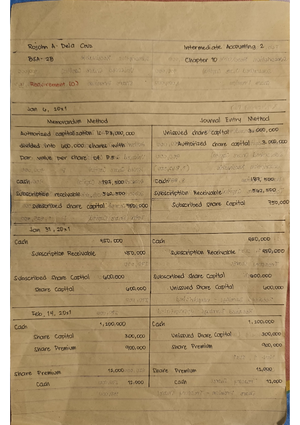 Rojohn A. Dela Cruz
Intermediate Accounting 2
BSA - 2B
Chapter 10
Requirement (c)
Jan 6, 20x1
Memorandum Method
Journal Entry Method
Authorized capitalization is P3,000,000
divided into 600,000 shares with
par value per share of P5.
Unissued share capital 3,000,000
Authorized share capital 3,000,000
Cash 187,500
Subscription receivable 562,500
Subscribed share capital 750,000
Cash 187,500
Subscription Receivable 562,500
Subscribed share Capital 750,000
Jan 31, 20x1
Cash 450,000
Subscription Receivable 450,000
Cash 450,000
Subscription Receivable 450,000
Subscribed Share Capital 600,000
Share Capital 600,000
Subscribed share Capital 600,000
Unissued Share Capital 600,000
Feb. 14, 20x1
Cash 1,200,000
Share Capital 300,000
Share Premium 900,000
Cash 1,200,000
Unissued Share Capital 300,000
Share Premium 900,000
Share Premium 12,000
Cash 12,000
Share Premium 12,000
Cash 12,000